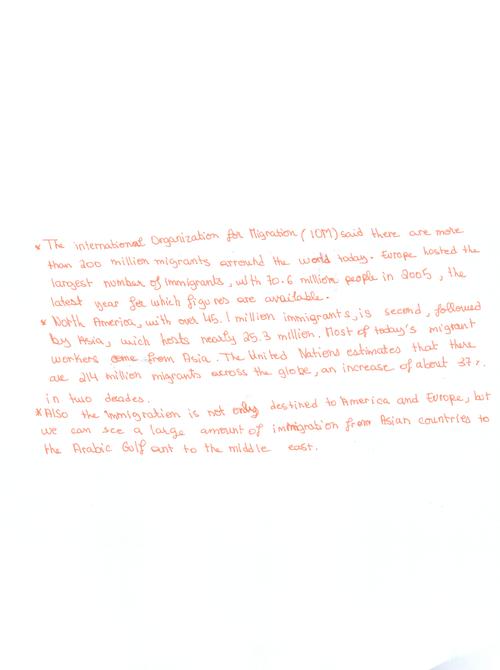 * The international Organization for Migration (IOM) said there are more
than 200 million migrants arround the world today. Europe hosted the
largest number of immigrants, with 70.6 million people in 2005, the
latest year for which figures are available.
* North America, with over 45.1 million immigrants, is second, followed
by Asia, wich hosts nearly 25.3 million. Most of today's migrant
workers come from Asia. The United Nations estimates that there
are 214 million migrants across the globe, an increase of about 37%.
in two decades.
* Also the immigration is not only destined to America and Europe, but
we can see a large amount of immigration from Asian countries to
the Arabic Golf ant to the middle east.